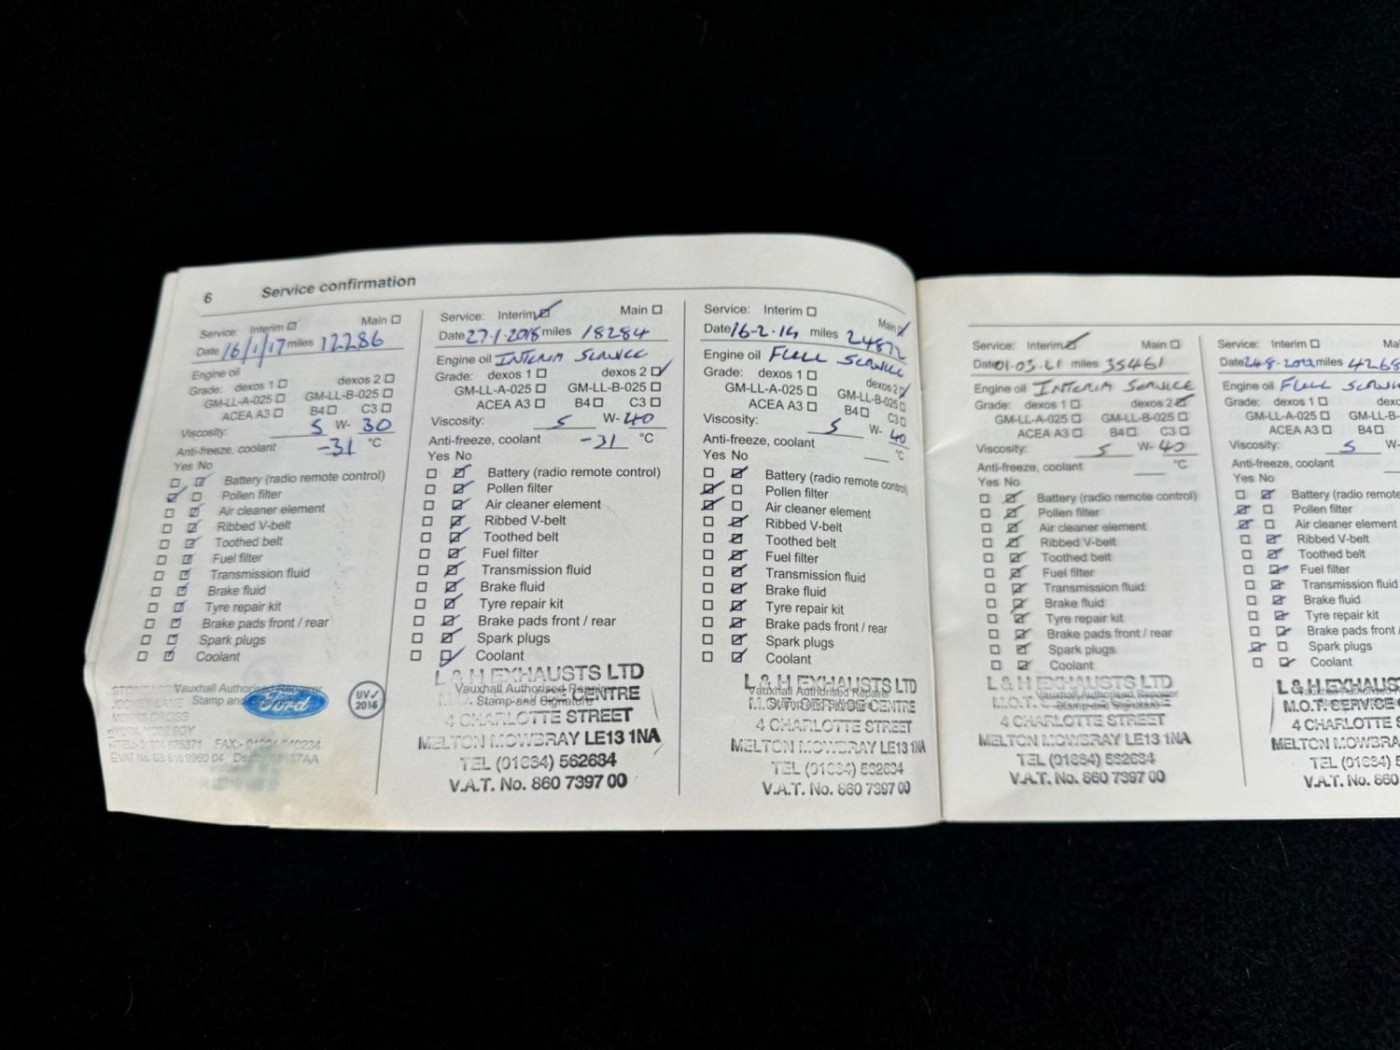 6 Service confirmation
Service: Interim Main
Date 16/1/17 miles 12286
Engine oil
Grade: dexos 1 dexos 2
GM-LL-A-025 GM-LL-B-025
ACEA A3 B4 C3
Viscosity: 5 W- 30
Anti-freeze, coolant -31 °C
Yes No
Battery (radio remote control)
Pollen filter
Air cleaner element
Ribbed V-belt
Toothed belt
Fuel filter
Transmission fluid
Brake fluid
Tyre repair kit
Brake pads front / rear
Spark plugs
Coolant
Vauxhall Authorised Repairer
Stamp and
Ford
UV
2016
Service: Interim Main
Date 27.1.2018 miles 18284
Engine oil INTERIM SERVICE
Grade: dexos 1 dexos 2
GM-LL-A-025 GM-LL-B-025
ACEA A3 B4 C3
Viscosity: 5 W- 40
Anti-freeze, coolant -31 °C
Yes No
Battery (radio remote control)
Pollen filter
Air cleaner element
Ribbed V-belt
Toothed belt
Fuel filter
Transmission fluid
Brake fluid
Tyre repair kit
Brake pads front / rear
Spark plugs
Coolant
L & H EXHAUSTS LTD
Vauxhall Authorised Repairer
CENTRE
Stamp and Signature
4 CHARLOTTE STREET
MELTON MOWBRAY LE13 1NA
TEL (01664) 562634
V.A.T. No. 860 7397 00
Service: Interim Main
Date 16-2-19 miles
Engine oil FULL SERVICE
Grade: dexos 1 dexos 2
GM-LL-A-025 GM-LL-B-025
ACEA A3 B4 C3
Viscosity: 5 W- 40
Anti-freeze, coolant °C
Yes No
Battery (radio remote control)
Pollen filter
Air cleaner element
Ribbed V-belt
Toothed belt
Fuel filter
Transmission fluid
Brake fluid
Tyre repair kit
Brake pads front / rear
Spark plugs
Coolant
L & H EXHAUSTS LTD
Vauxhall Authorised Repairer
M.O.T. SERVICE CENTRE
4 CHARLOTTE STREET
MELTON MOWBRAY LE13 1NA
TEL (01664) 562634
V.A.T. No. 860 7397 00
Service: Interim Main
Date 01-03-21 miles 35461
Engine oil INTERIM SERVICE
Grade: dexos 1 dexos 2
GM-LL-A-025 GM-LL-B-025
ACEA A3 B4 C3
Viscosity: 5 W- 40
Anti-freeze, coolant °C
Yes No
Battery (radio remote control)
Pollen filter
Air cleaner element
Ribbed V-belt
Toothed belt
Fuel filter
Transmission fluid
Brake fluid
Tyre repair kit
Brake pads front / rear
Spark plugs
Coolant
L & H EXHAUSTS LTD
Vauxhall Authorised Repairer
M.O.T.
Stamp and Signature
4 CHARLOTTE STREET
MELTON MOWBRAY LE13 1NA
TEL (01664) 562634
V.A.T. No. 860 7397 00
Service: Interim Ma
Date miles 4268
Engine oil FULL SERV
Grade: dexos 1 dexo
GM-LL-A-025 GM-LL-B
ACEA A3 B4
Viscosity: 5 W-
Anti-freeze, coolant
Yes No
Battery (radio remote
Pollen filter
Air cleaner element
Ribbed V-belt
Toothed belt
Fuel filter
Transmission fluid
Brake fluid
Tyre repair kit
Brake pads front /
Spark plugs
Coolant
L & H EXHAUS
M.O.T. SERVICE
4 CHARLOTTE
MELTON MOWBRA
TEL (01664)
V.A.T. No. 860